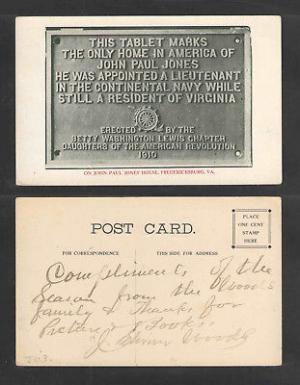 THIS TABLET MARKS
THE ONLY HOME IN AMERICA OF
JOHN PAUL JONES
HE WAS APPOINTED A LIEUTENANT
IN THE CONTINENTAL NAVY WHILE
STILL A RESIDENT OF VIRGINIA
ERECTED BY THE
BETTY WASHINGTON LEWIS CHAPTER
DAUGHTERS OF THE AMERICAN REVOLUTION
1910
ON JOHN PAUL JONES' HOUSE, FREDERICKSBURG, VA.
POST CARD.
PLACE
ONE CENT
STAMP
HERE
FOR CORRESPONDENCE
THIS SIDE FOR ADDRESS
Compliments of the
Season from the Woods
family & thanks for
Picture &
Woods